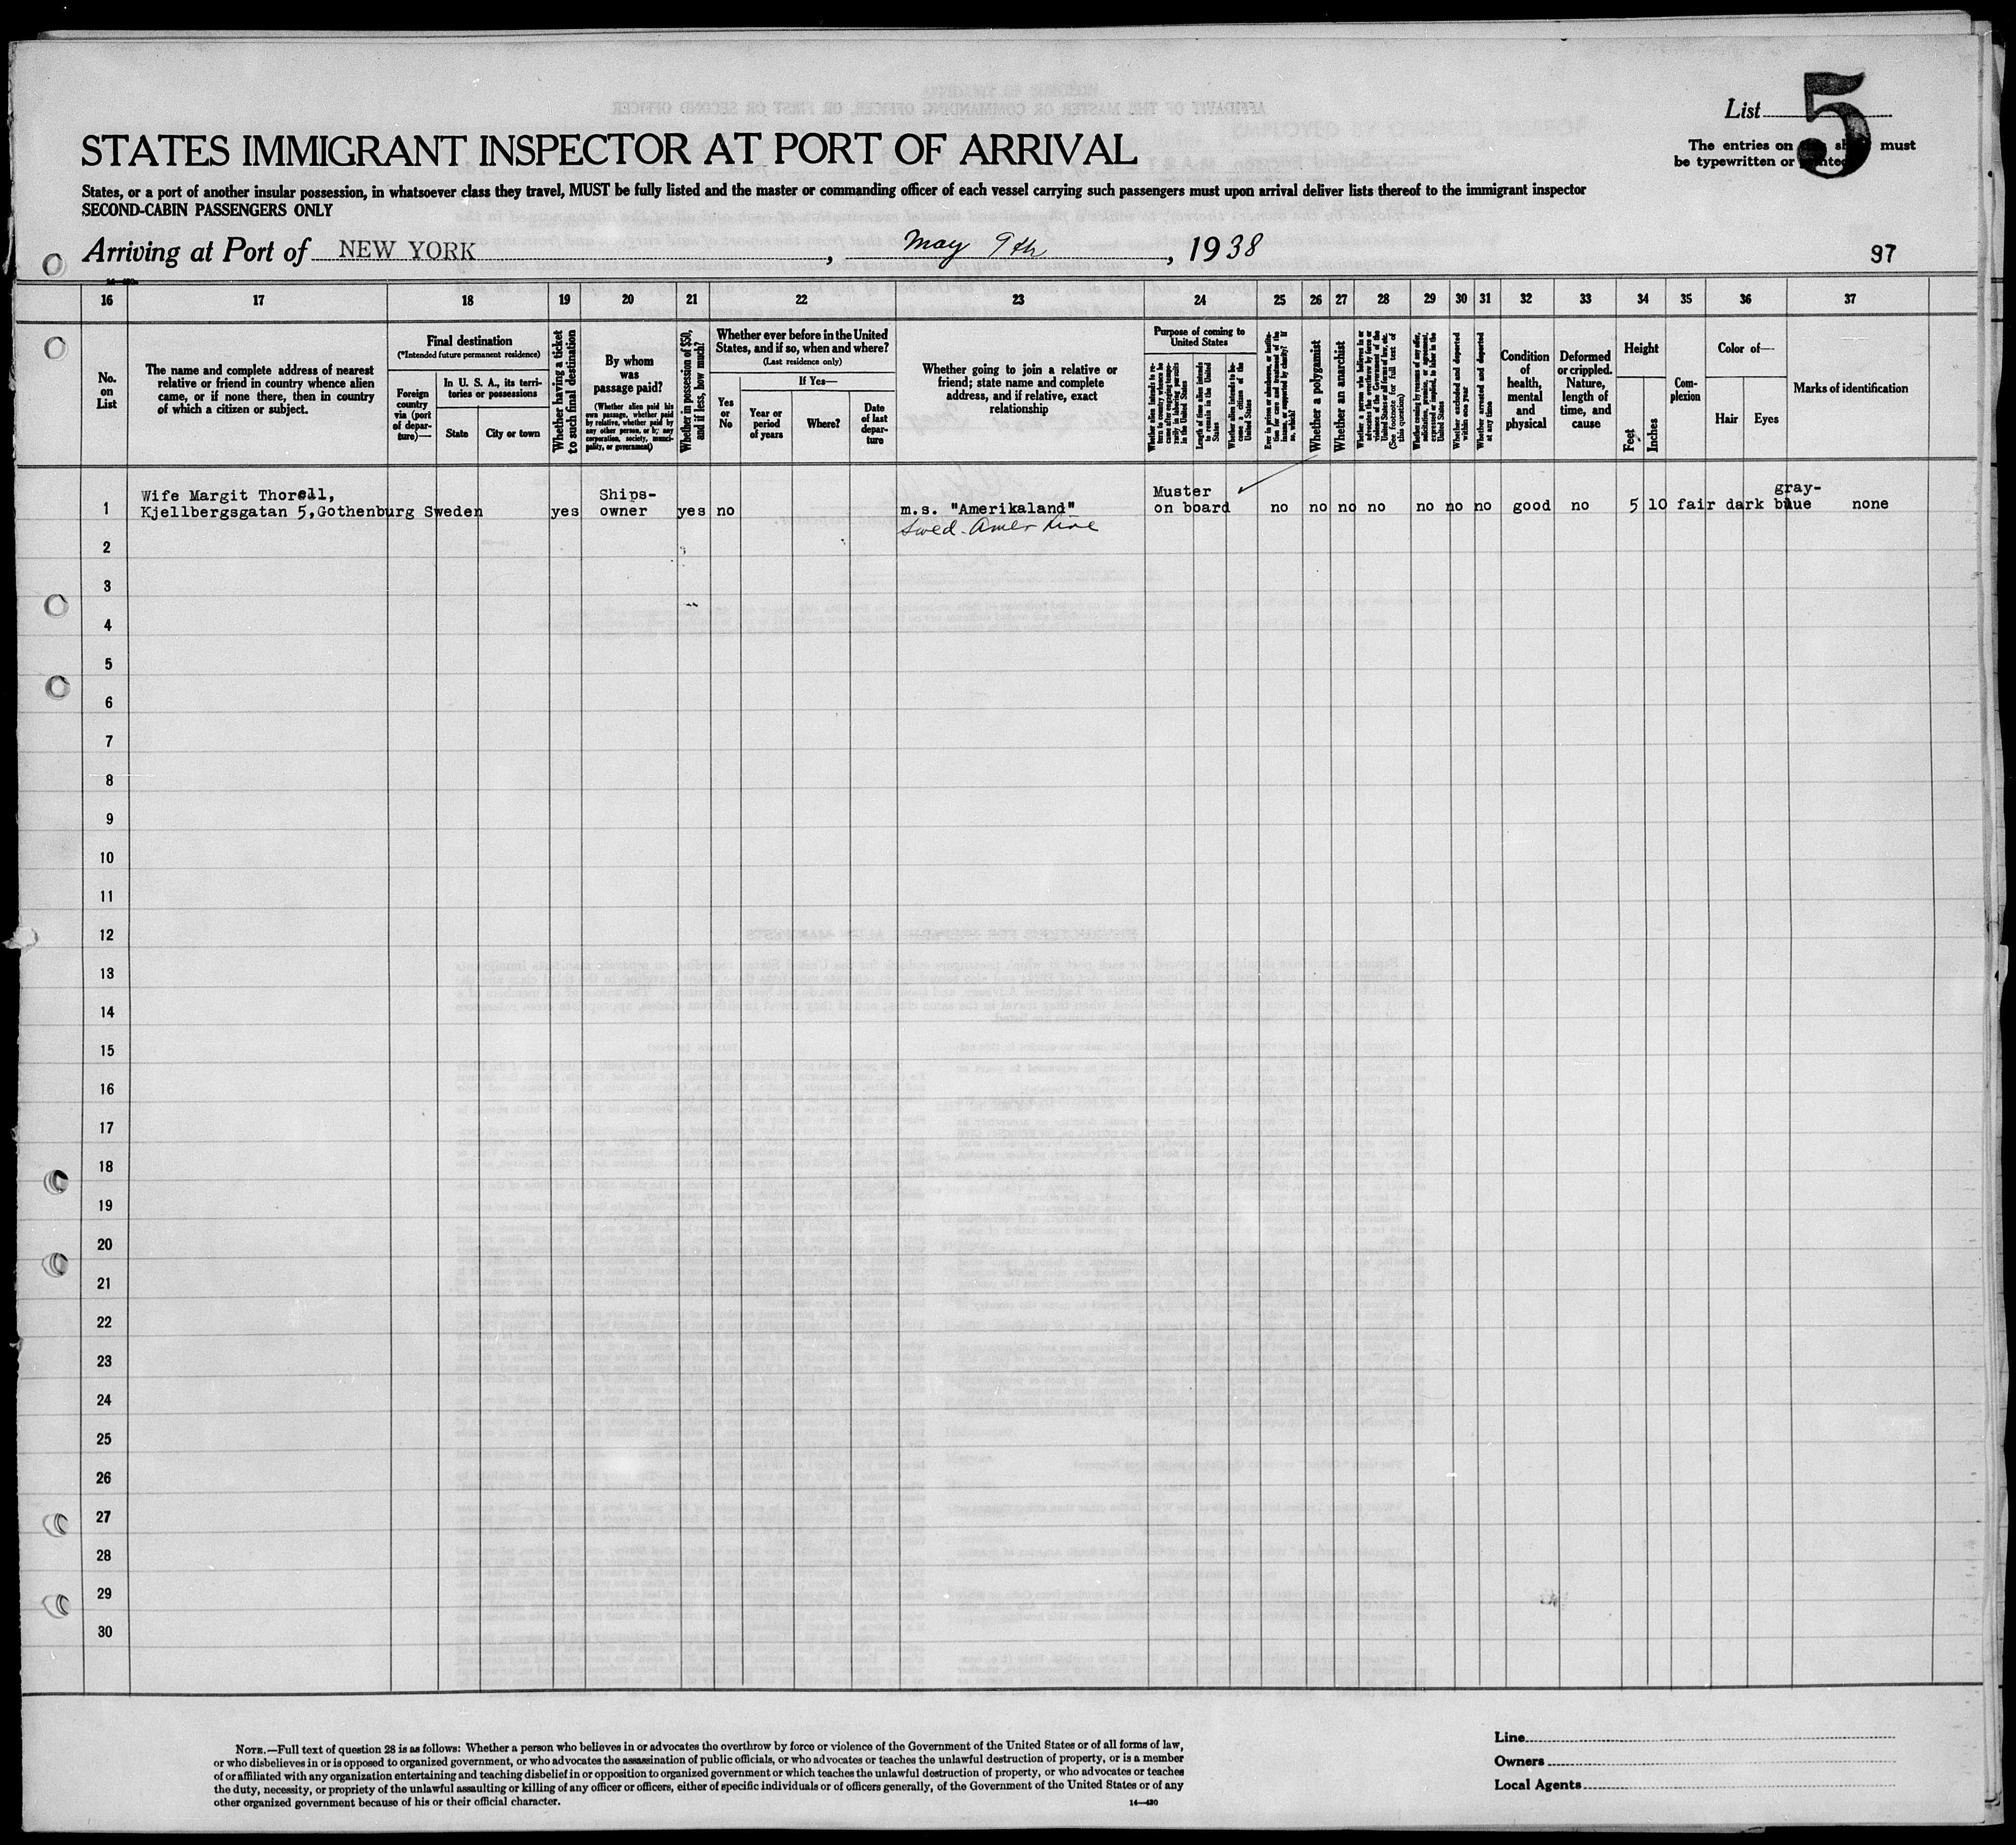 List 5
The entries on must
be typewritten or
STATES IMMIGRANT INSPECTOR AT PORT OF ARRIVAL
States, or a port of another insular possession, in whatsoever class they travel, MUST be fully listed and the master or commanding officer of each vessel carrying such passengers must upon arrival deliver lists thereof to the immigrant inspector
SECOND-CABIN PASSENGERS ONLY
Arriving at Port of NEW YORK, May 9th, 1938
97
16 17 18 19 20 21 22 23 24 25 26 27 28 29 30 31 32 33 34 35 36 37
No.
on
List
The name and complete address of nearest
relative or friend in country whence alien
came, or if none there, then in country
of which a citizen or subject.
Final destination
(*Intended future permanent residence)
Foreign
country
via (port
of depar-
ture)—
In U. S. A., its terri-
tories or possessions
State
City or town
Whether having a ticket
to such final destination
By whom
was
passage paid?
(Whether alien paid his
own passage, whether paid
by relative, whether paid by
any other person, or by any
corporation, society, munici-
pality, or government)
Whether in possession of $50,
and if less, how much?
Whether ever before in the United
States, and if so, when and where?
(Last residence only)
Yes
or
No
If Yes—
Year or
period
of years
Where?
Date
of last
depar-
ture
Whether going to join a relative or
friend; state name and complete
address, and if relative, exact
relationship
Purpose of coming to
United States
Whether alien intends to re-
turn to country whence he
came after engaging tempo-
rarily in laboring pursuits
in the United States
Length of time alien intends
to remain in the United
States
Whether alien intends to be-
come a citizen of the
United States
Ever in prison or almshouse, or institu-
tion for care and treatment of the
insane, or supported by charity? If
so, which?
Whether a polygamist
Whether an anarchist
Whether a person who believes in or
advocates the overthrow by force or
violence of the Government of the
United States or all forms of law, etc.
(See footnote for full text of
this question)
Whether coming by reason of any offer,
solicitation, promise, or agreement,
expressed or implied, to labor in the
United States
Whether excluded and deported
within one year
Whether arrested and deported
at any time
Condition
of
health,
mental
and
physical
Deformed
or crippled.
Nature,
length of
time, and
cause
Height
Feet
Inches
Com-
plexion
Color of—
Hair
Eyes
Marks of identification
Wife Margit Thorell, Ships- Muster gray-
1 Kjellbergsgatan 5,Gothenburg Sweden yes owner yes no m.s. "Amerikaland" on board no no no no no no no good no 5 10 fair dark blue none
Swed-Amer Line
2
3
4
5
6
7
8
9
10
11
12
13
14
15
16
17
18
19
20
21
22
23
24
25
26
27
28
29
30
NOTE.—Full text of question 28 is as follows: Whether a person who believes in or advocates the overthrow by force or violence of the Government of the United States or of all forms of law,
or who disbelieves in or is opposed to organized government, or who advocates the assassination of public officials, or who advocates or teaches the unlawful destruction of property, or is a member
of or affiliated with any organization entertaining and teaching disbelief in or opposition to organized government or which teaches the unlawful destruction of property, or who advocates or teaches
the duty, necessity, or propriety of the unlawful assaulting or killing of any officer or officers, either of specific individuals or of officers generally, of the Government of the United States or of any
other organized government because of his or their official character.
14—430
Line
Owners
Local Agents